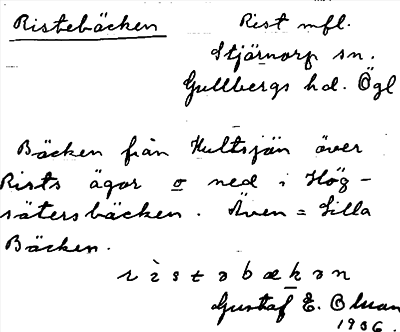 Ristebäcken
Rist mfl.
Stjärnorp sn.
Gullbergs hd. Ögl
Bäcken från Hultsjön över
Rists ägor o ned i Hög-
sätersbäcken. Även = Lilla
Bäcken.
rìstəbækən
Gustaf E. Olsson
1936.